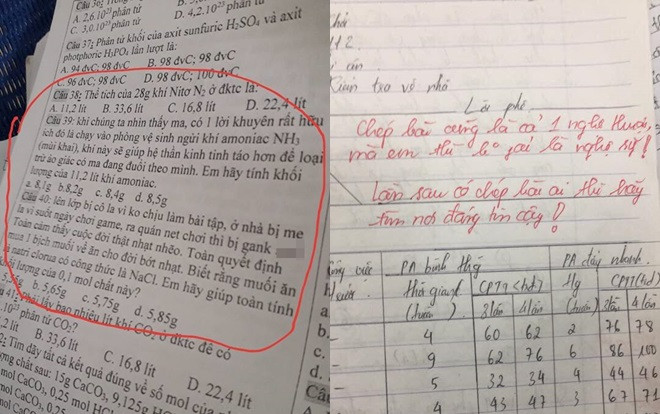 Câu 36:
A. 2,6.10²³ phân tử
C. 3,0.10²³ phân tử
D. 4,2.10²³ phân tử
Câu 37: Phân tử khối của axit sunfuric H₂SO₄ và axit
photphoric H₃PO₄ lần lượt là:
A. 94 đvC; 98 đvC B. 98 đvC; 98 đvC
C. 96 đvC; 98 đvC D. 98 đvC; 100 đvC
Câu 38: Thể tích của 28g khí Nitơ N₂ ở đktc là:
A. 11,2 lít B. 33,6 lít C. 16,8 lít D. 22,4 lít
Câu 39: khi chúng ta nhìn thấy ma, có 1 lời khuyên rất hữu
ích đó là chạy vào phòng vệ sinh ngửi khí amoniac NH₃
(mùi khai), khí này sẽ giúp hệ thần kinh tỉnh táo hơn để loại
trừ ảo giác có ma đang đuổi theo mình. Em hãy tính khối
lượng của 11,2 lít khí amoniac.
a. 8,1g b.8,2g c. 8,4g d. 8,5g
Câu 40: lên lớp bị cô la vì ko chịu làm bài tập, ở nhà bị mẹ
la vì suốt ngày chơi game, ra quán net chơi thì bị gank
Toàn cảm thấy cuộc đời thật nhạt nhẽo. Toàn quyết định
mua 1 bịch muối về ăn cho đời bớt nhạt. Biết rằng muối ăn
là natri clorua có công thức là NaCl. Em hãy giúp toàn tính
khối lượng của 0,1 mol chất này?
b. 5,65g c. 5,75g d. 5,85g
bao nhiêu lít khí CO₂ ở đktc để có
phân tử CO₂?
B. 33,6 lít C. 16,8 lít D. 22,4 lít
Tìm đáy tất cả kết quả đúng về số mol của
chất sau: 15g CaCO₃, 9,125g
mol CaCO₃, 0,25 mol
Kiểm tra về nhà
Lời phê
Chép bài cũng là cả 1 nghệ thuật,
mà em thì lo gai là nghệ sỹ!
Lần sau có chép bài ai thì hãy
tìm nơi đáng tin cậy!
PA bình thg PA đẩy nhanh
Thời gian (tuần) CPTT (hđ) Tg (tuần) CPTT (hđ)
3 lần 4 lần 3 lần 4 lần
4 60 62 2 76 78
9 62 76 6 86 100
5 32 34 4 44 46
4 43 47 3 67 71